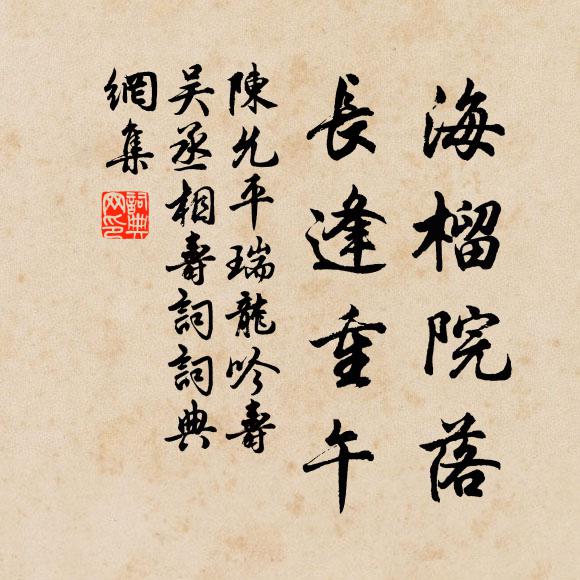 海榴院落
長逢重午
陳允平瑞龍吟壽
吴丞相壽詞詞典
網集
詞典
网印